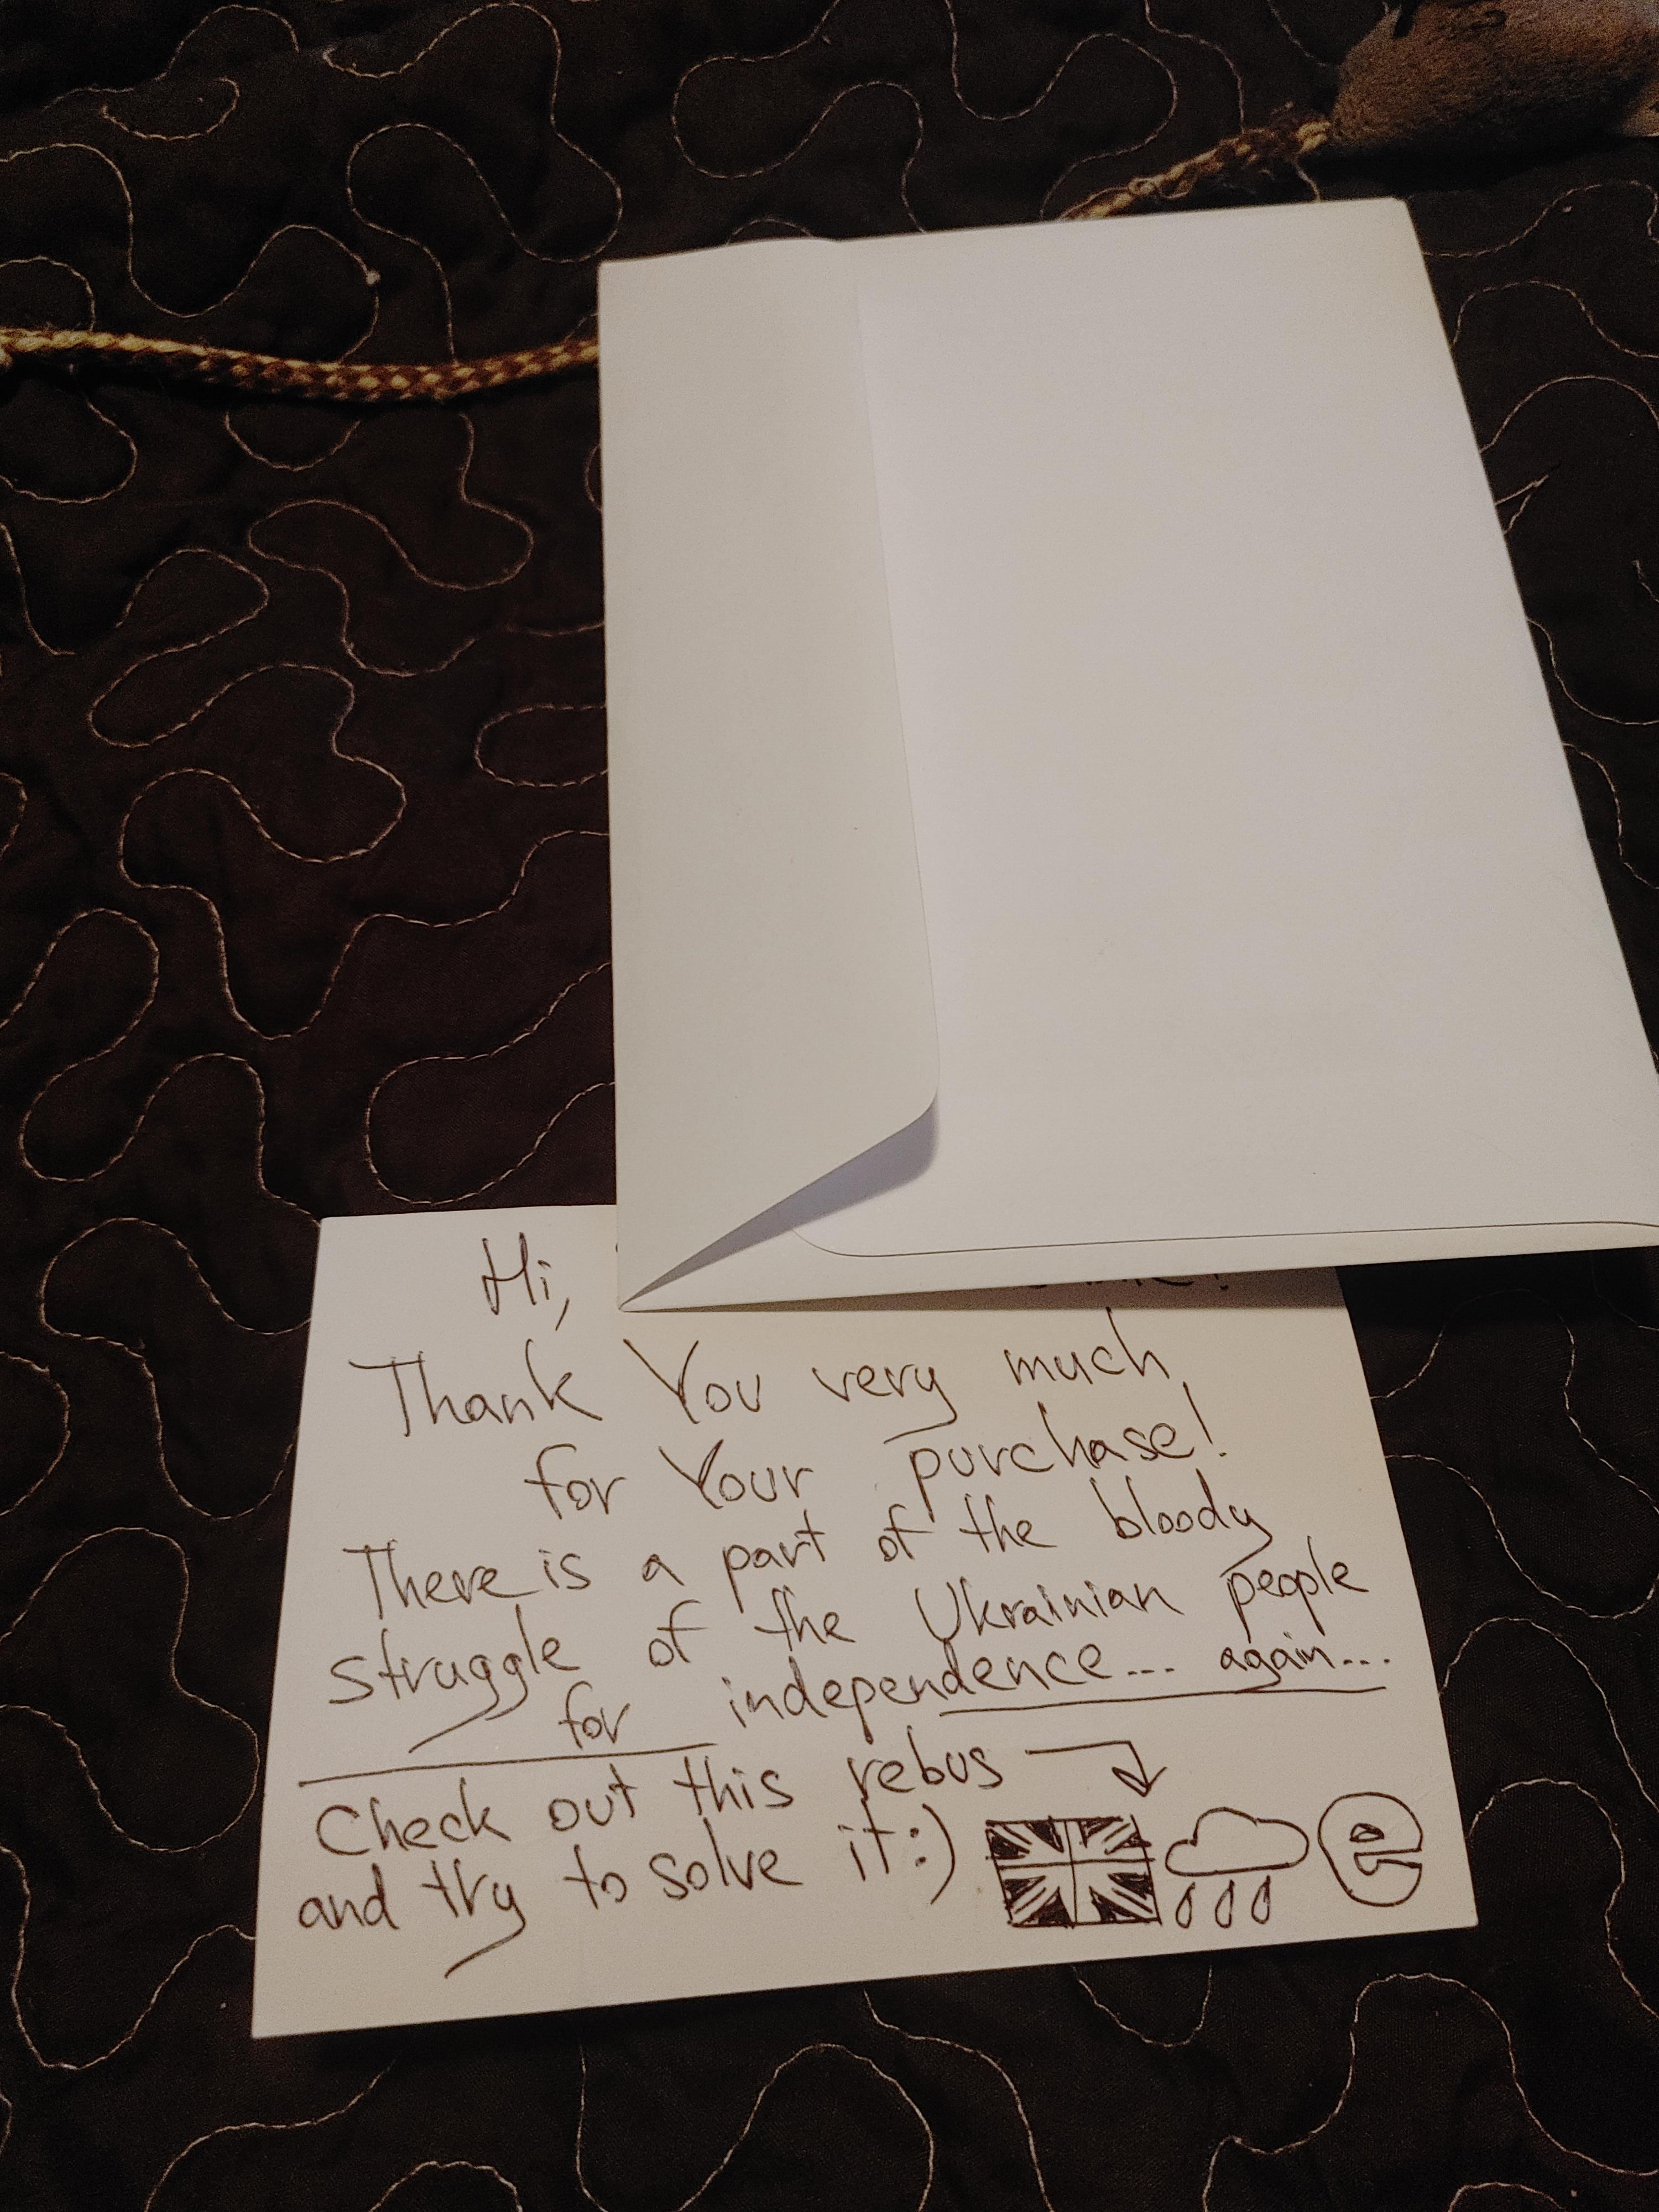 Hi,
Thank You very much
for Your purchase!
There is a part of the bloody
struggle of the Ukrainian people
for independence... again...
Check out this rebus
and try to solve it:)
e